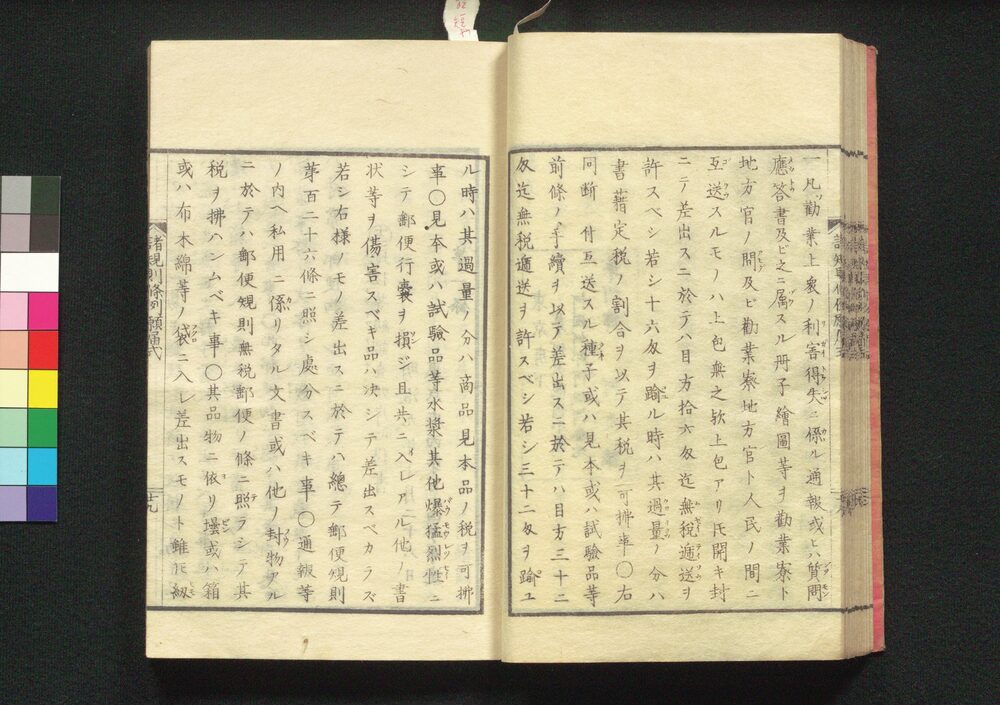 一凡ソ勸業上衆ノ利害得失ニ係ル通報或ヒハ質問
應答書及ビ之ニ属スル冊子繪圖等ヲ勸業寮ト
地方官ノ間及ビ勸業寮地方官ト人民ノ間ニ
互送スルモノハ上包無之欤上包アリ𪜈開キ封
ニテ差出スニ於テハ目方拾六匁迄無税逓送ヲ
許スベシ若シ十六匁ヲ踰ル時ハ其過量ノ分ハ
書籍定税ノ割合ヲ以テ其税ヲ可拂事〇右
同断付互送スル種子或ハ見本或ハ試驗品等
前條ノ手續ヲ以テ差出スニ於テハ目方三十二
匁迄無税逓送ヲ許スベシ若シ三十二匁ヲ踰ユ
ル時ハ其過量ノ分ハ商品見本品ノ税ヲ可拂
事〇見本或ハ試驗品等水漿其他爆猛烈性ニ
シテ郵便行嚢ヲ損ジ且共ニ入レアル他ノ書
状等ヲ傷害スベキ品ハ决シテ差出スベカラズ
若シ右様ノモノ差出スニ於テハ總テ郵便規則
第百二十六條ニ照シ處分スベキ事〇通報等
ノ内ヘ私用ニ係リタル文書或ハ他ノ封物アル
ニ於テハ郵便規則無税郵便ノ條ニ照ラシテ其
税ヲ拂ハシムベキ事〇其品物ニ依リ壜或ハ箱
或ハ布木綿等ノ袋ニ入レ差出スモノト雖𪜈紐
諸規則條列願届式
十九